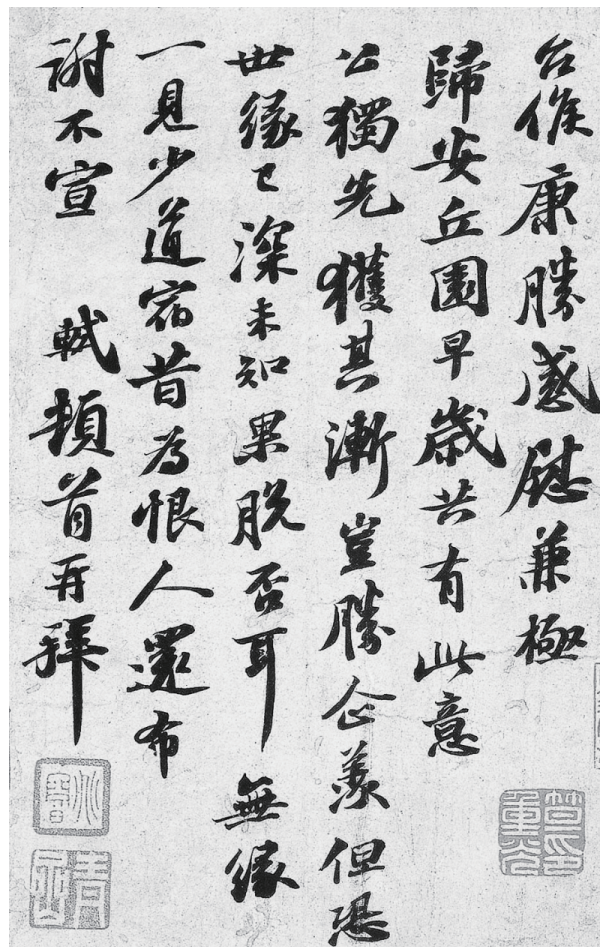 台候康勝感慰兼極
歸安丘園早歲共有此意
公獨先獲其漸豈勝企羨但恐
世緣已深未知果脫否耳無緣
一見少道宿昔為恨人還布
謝不宣 軾頓首再拜